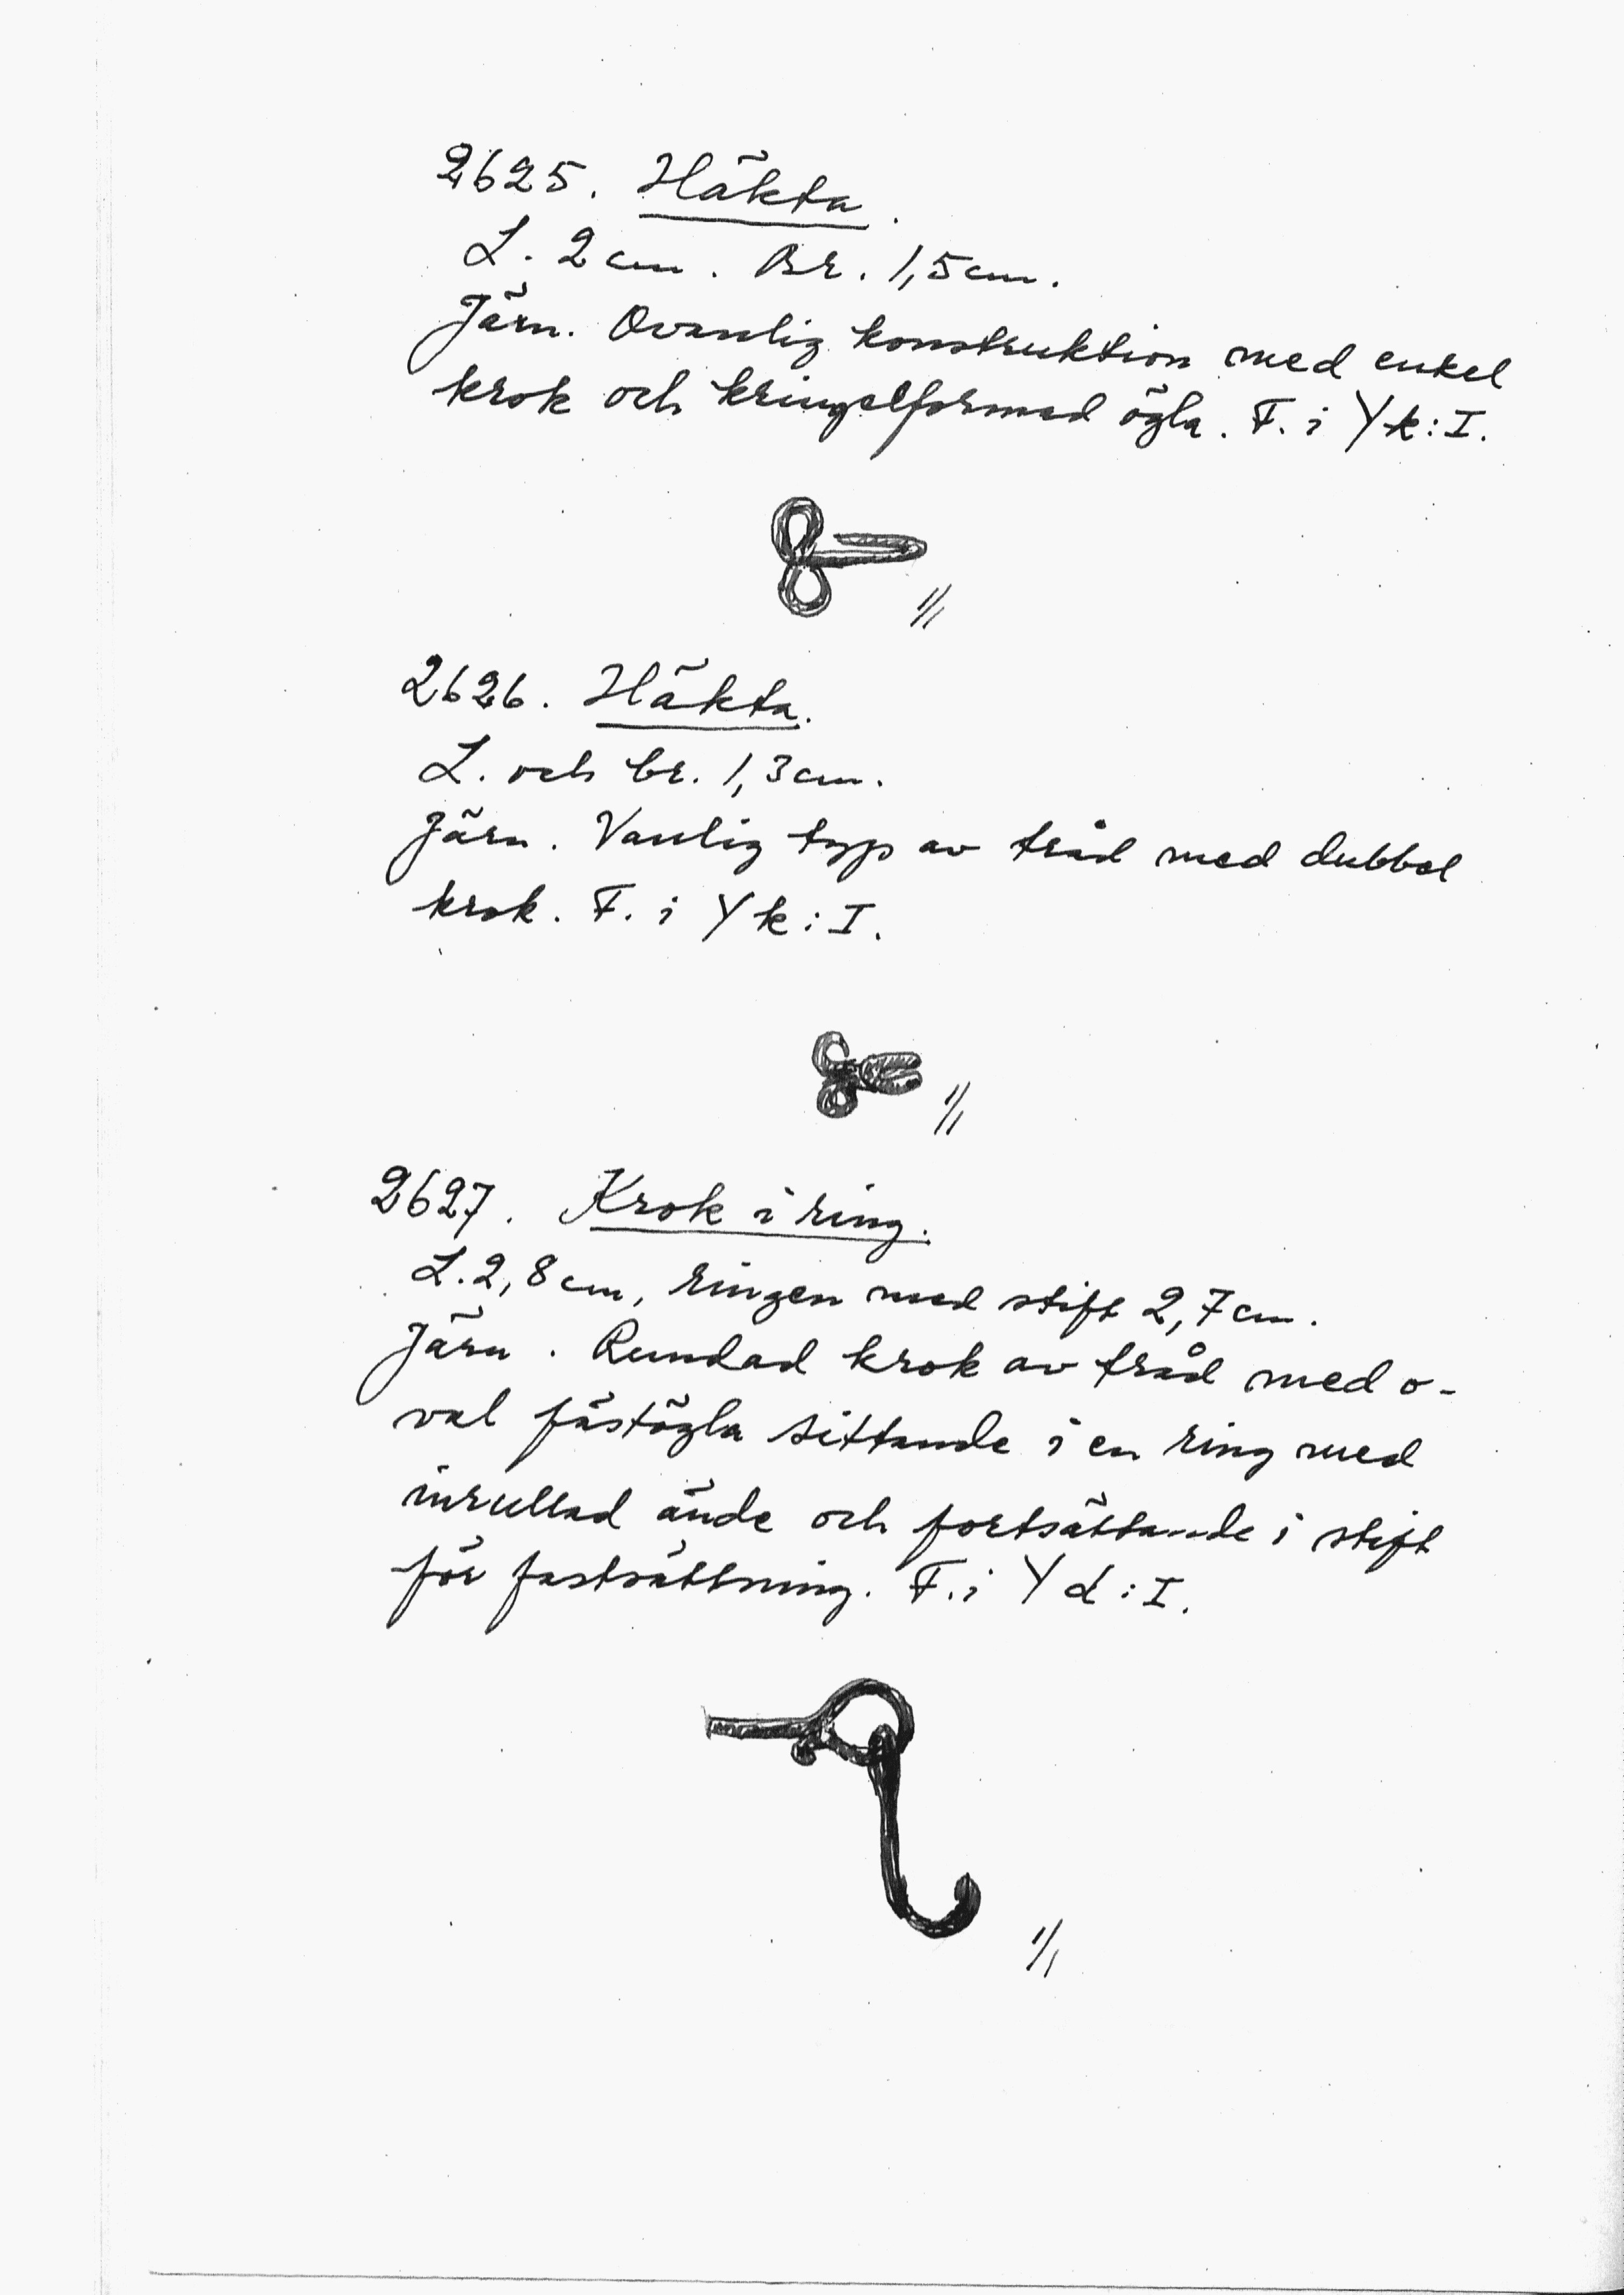 2625. Häkta.
L. 2 cm. Br. 1,5 cm.
Järn. Ovanlig konstruktion med enkel
krok och kringelformad ögla. F. i Yk:I.
1/1
2626. Häkta.
L. och br. 1,3 cm.
Järn. Vanlig typ av tråd med dubbel
krok. F. i Yk:I.
1/1
2627. Krok i ring.
L. 2,8 cm, ringen med stift 2,7 cm.
Järn. Rundad krok av tråd med o-
val fästögla sittande i en ring med
inrullad ände och fortsättande i stift
för fastsättning. F. i Yd:I.
1/1